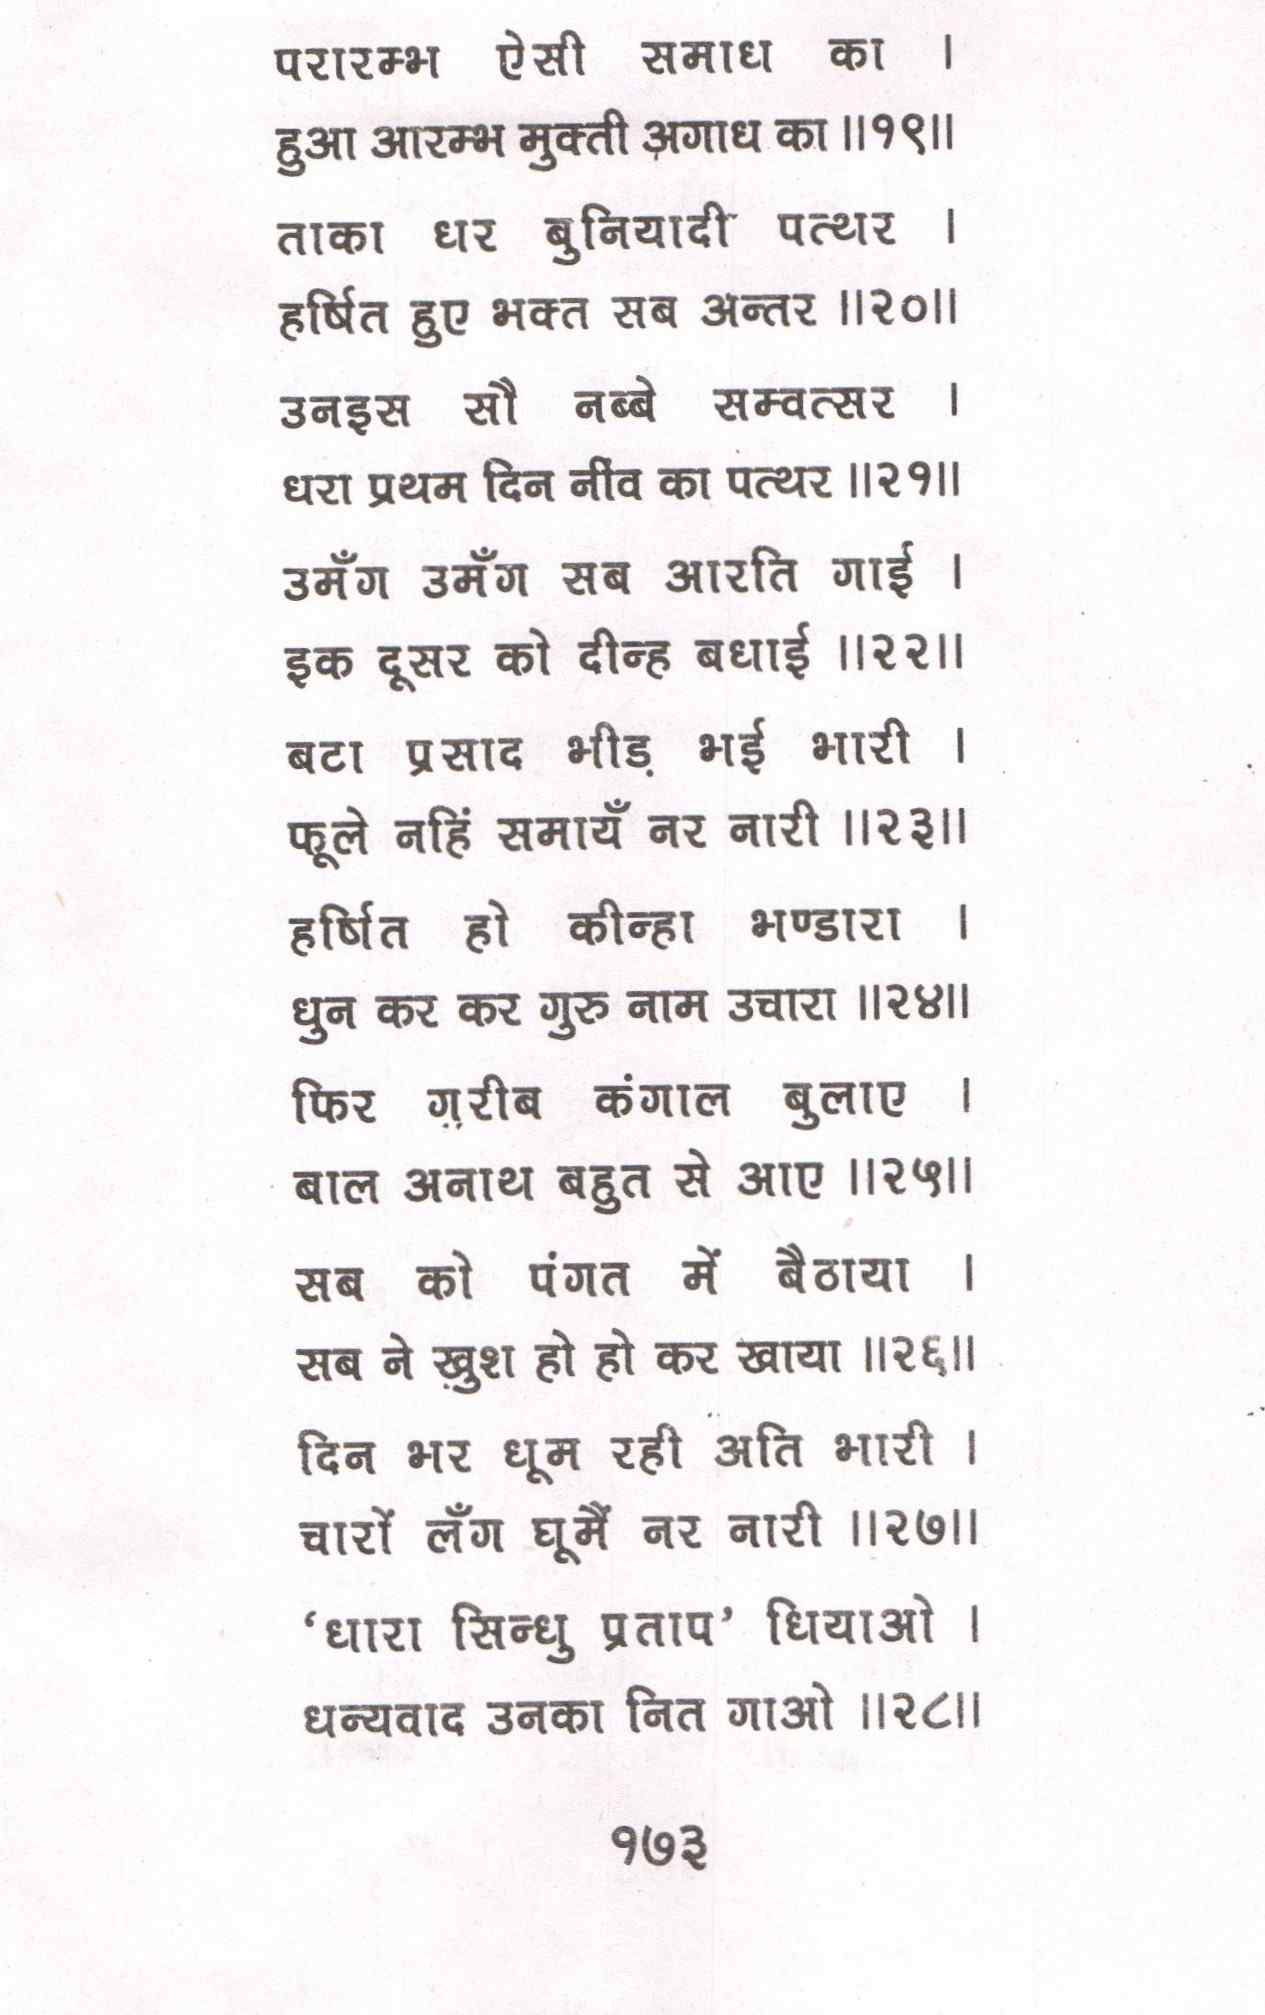 परारम्भ ऐसी समाध का ।
हुआ आरम्भ मुक्ती अगाध का ॥१९॥
ताका धर बुनियादी पत्थर ।
हर्षित हुए भक्त सब अन्तर ॥२०॥
उनइस सौ नब्बे सम्वत्सर ।
धरा प्रथम दिन नींव का पत्थर ॥२१॥
उमँग उमँग सब आरति गाई ।
इक दूसर को दीन्ह बधाई ॥२२॥
बटा प्रसाद भीड़ भई भारी ।
फूले नहिं समायँ नर नारी ॥२३॥
हर्षित हो कीन्हा भण्डारा ।
धुन कर कर गुरु नाम उचारा ॥२४॥
फिर ग़रीब कंगाल बुलाए ।
बाल अनाथ बहुत से आए ॥२५॥
सब को पंगत में बैठाया ।
सब ने ख़ुश हो हो कर खाया ॥२६॥
दिन भर धूम रही अति भारी ।
चारों लँग घूमैं नर नारी ॥२७॥
‘धारा सिन्धु प्रताप’ धियाओ ।
धन्यवाद उनका नित गाओ ॥२८॥
१७३